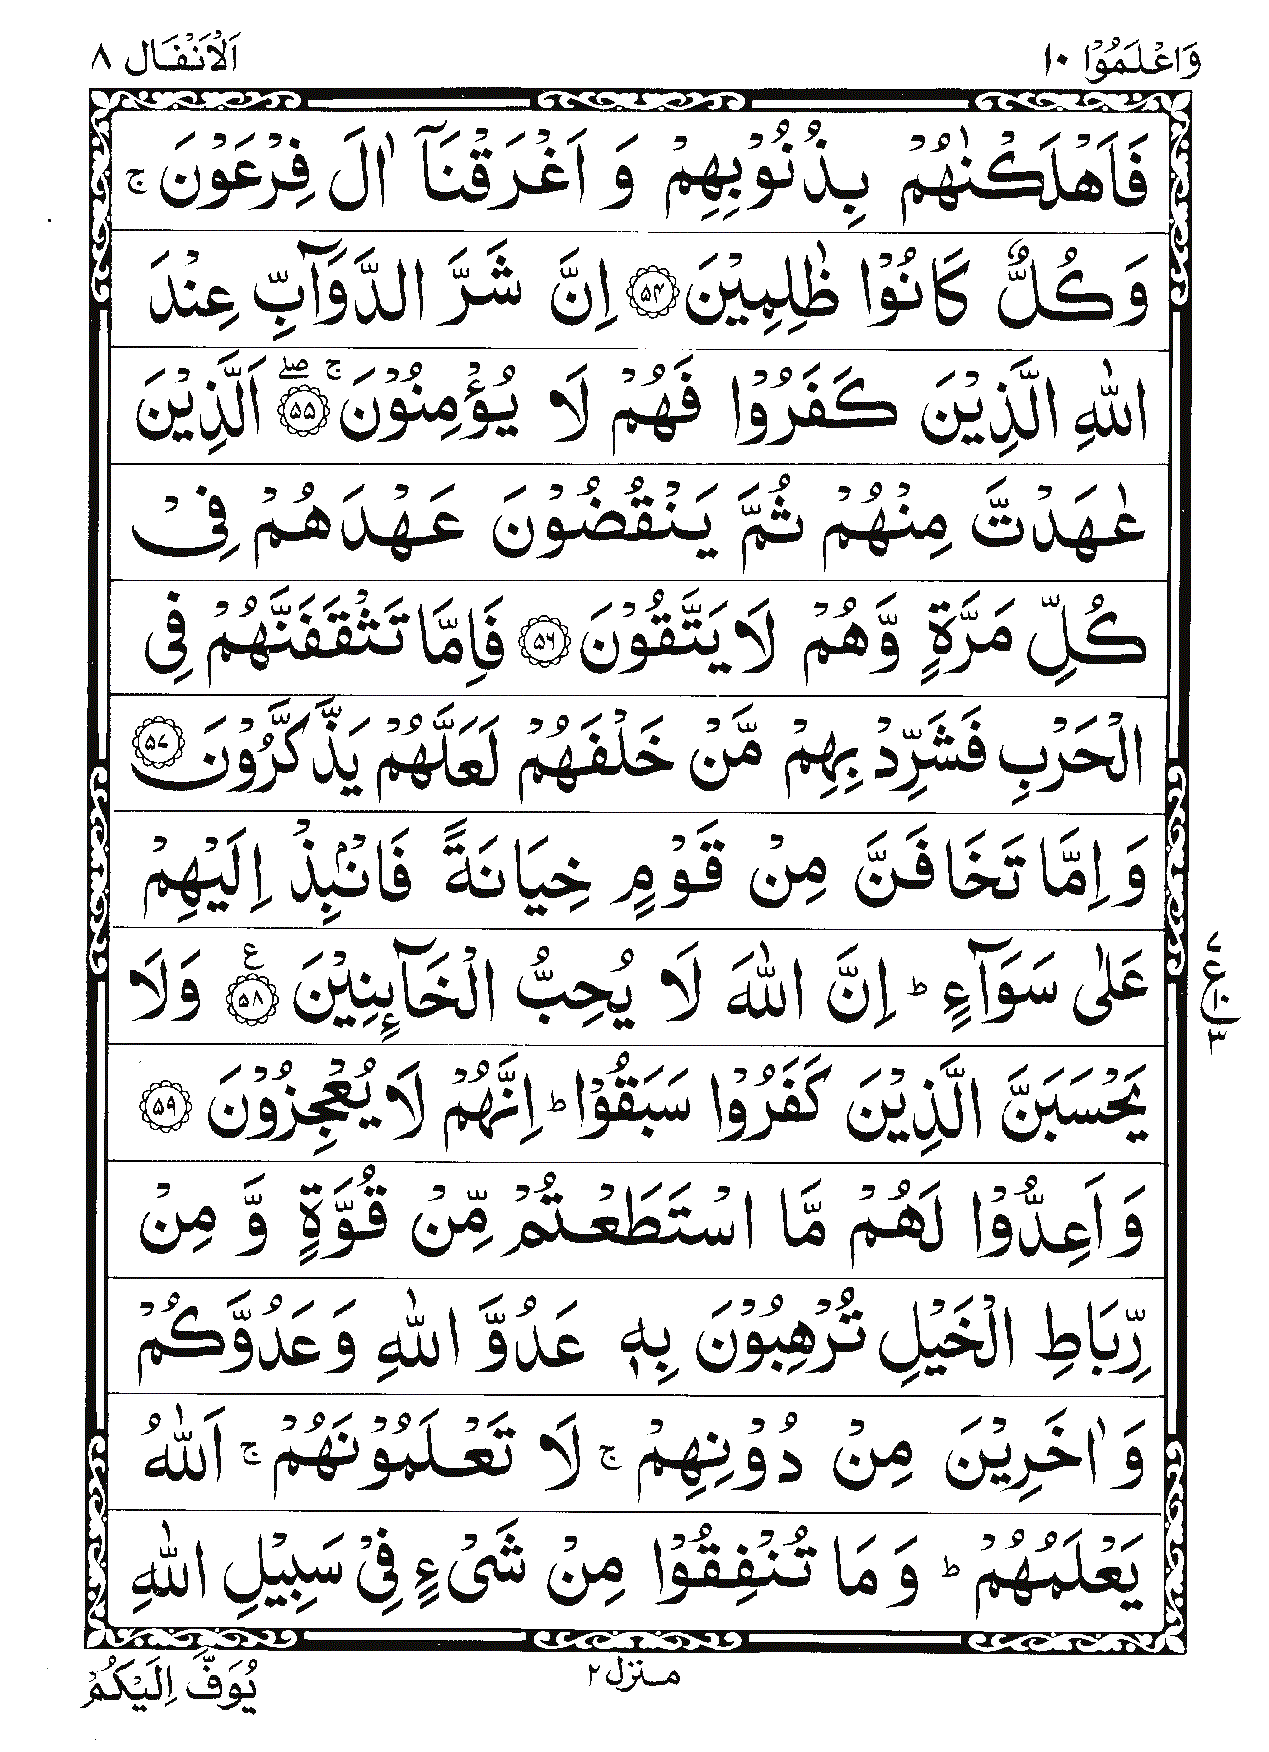 وَاعْلَمُوْۤا ١٠
اَلْاَنْفَال ٨
فَاَهْلَكْنٰهُمْ بِذُنُوْبِهِمْ وَ اَغْرَقْنَاۤ اٰلَ فِرْعَوْنَ ۚ
وَكُلٌّ كَانُوْا ظٰلِمِيْنَ ۝۵۴ اِنَّ شَرَّ الدَّوَآبِّ عِنْدَ
اللّٰهِ الَّذِيْنَ كَفَرُوْا فَهُمْ لَا يُؤْمِنُوْنَ ۖۚ ۝۵۵ اَلَّذِيْنَ
عٰهَدْتَّ مِنْهُمْ ثُمَّ يَنْقُضُوْنَ عَهْدَهُمْ فِيْ
كُلِّ مَرَّةٍ وَّهُمْ لَا يَتَّقُوْنَ ۝۵۶ فَاِمَّا تَثْقَفَنَّهُمْ فِى
الْحَرْبِ فَشَرِّدْ بِهِمْ مَّنْ خَلْفَهُمْ لَعَلَّهُمْ يَذَّكَّرُوْنَ ۝۵۷
وَ اِمَّا تَخَافَنَّ مِنْ قَوْمٍ خِيَانَةً فَانْۢبِذْ اِلَيْهِمْ
عَلٰى سَوَآءٍ ؕ اِنَّ اللّٰهَ لَا يُحِبُّ الْخَآىِٕنِيْنَ ۝۵۸ ع وَلَا
يَحْسَبَنَّ الَّذِيْنَ كَفَرُوْا سَبَقُوْا ؕ اِنَّهُمْ لَا يُعْجِزُوْنَ ۝۵۹
وَ اَعِدُّوْا لَهُمْ مَّا اسْتَطَعْتُمْ مِّنْ قُوَّةٍ وَّ مِنْ
رِّبَاطِ الْخَيْلِ تُرْهِبُوْنَ بِهٖ عَدُوَّ اللّٰهِ وَ عَدُوَّكُمْ
وَ اٰخَرِيْنَ مِنْ دُوْنِهِمْ ۚ لَا تَعْلَمُوْنَهُمْ ۚ اَللّٰهُ
يَعْلَمُهُمْ ؕ وَ مَا تُنْفِقُوْا مِنْ شَيْءٍ فِيْ سَبِيْلِ اللّٰهِ
٧
ع
١٠
٣
منزل ٢
يُوَفَّ اِلَيْكُمْ